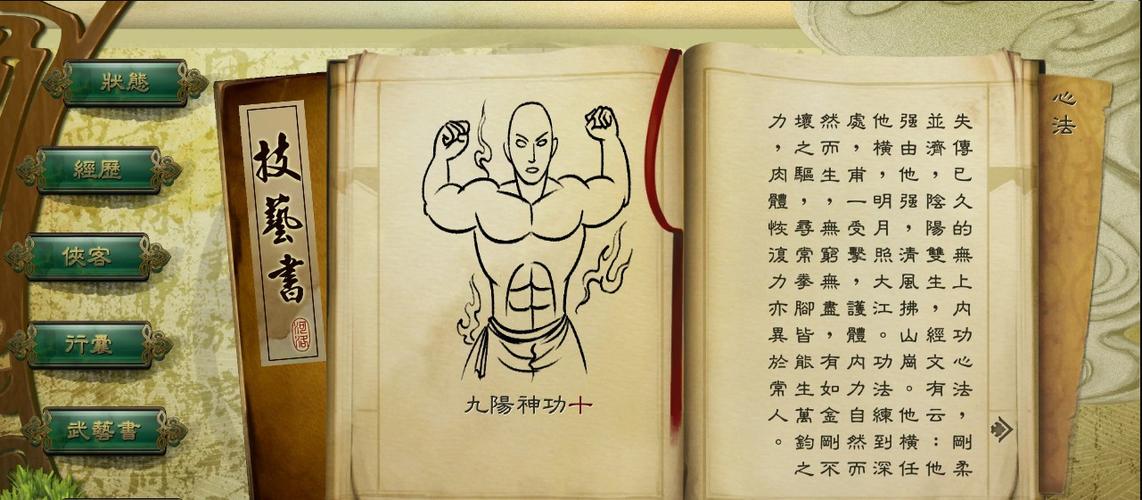 狀態
經歷
俠客
行囊
武藝書
技藝書
河洛
九陽神功十
心法
失傳已久的無上内功心法，剛柔
並濟，陰陽雙生，經文有云：他
强由他强，清風拂山崗。他橫任
他橫，明月照大江。功法練到深
處，甫一受擊，護體内力自然而
然而生，無窮無盡，有如金剛不
壞之驅，尋常拳腳皆能生萬鈞之
力，肉體恢復力亦異於常人。